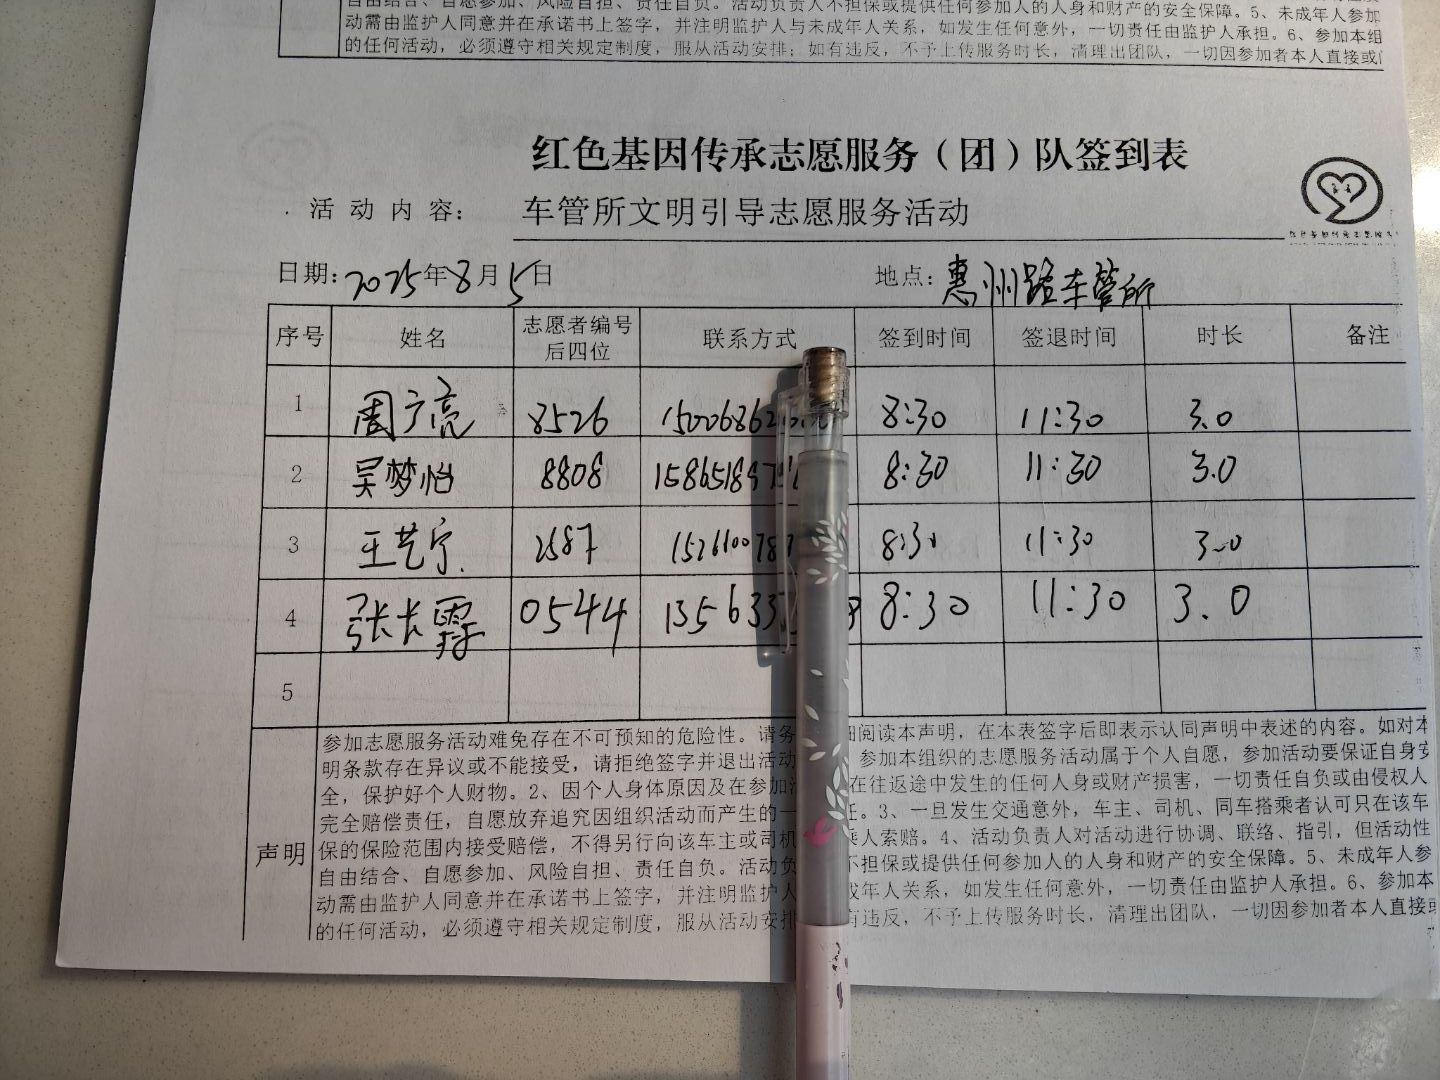 自由结合、自愿参加、风险自担、责任自负。活动负责人不担保或提供任何参加人的人身和财产的安全保障。5、未成年人参加
动需由监护人同意并在承诺书上签字，并注明监护人与未成年人关系，如发生任何意外，一切责任由监护人承担。6、参加本组
的任何活动，必须遵守相关规定制度，服从活动安排；如有违反，不予上传服务时长，清理出团队，一切因参加者本人直接或
红色基因传承志愿服务（团）队签到表
活动内容： 车管所文明引导志愿服务活动
日期：2025年8月5日 地点：惠州路车管所
序号 姓名 志愿者编号后四位 联系方式 签到时间 签退时间 时长 备注
1 周广亮 8526 150068626 8:30 11:30 3.0
2 吴梦怡 8808 158651897 8:30 11:30 3.0
3 王艺宁 2587 152610078 8:30 11:30 3.0
4 张长霞 0544 135633 8:30 11:30 3.0
5
声明
参加志愿服务活动难免存在不可预知的危险性。请务 细阅读本声明，在本表签字后即表示认同声明中表述的内容。如对本
明条款存在异议或不能接受，请拒绝签字并退出活动 参加本组织的志愿服务活动属于个人自愿，参加活动要保证自身安
全，保护好个人财物。2、因个人身体原因及在参加 在往返途中发生的任何人身或财产损害，一切责任自负或由侵权人
完全赔偿责任，自愿放弃追究因组织活动而产生的一 任。3、一旦发生交通意外，车主、司机、同车搭乘者认可只在该车
保的保险范围内接受赔偿，不得另行向该车主或司机 乘人索赔。4、活动负责人对活动进行协调、联络、指引，但活动性
自由结合、自愿参加、风险自担、责任自负。活动负 不担保或提供任何参加人的人身和财产的安全保障。5、未成年人参
动需由监护人同意并在承诺书上签字，并注明监护人 成年人关系，如发生任何意外，一切责任由监护人承担。6、参加本
的任何活动，必须遵守相关规定制度，服从活动安排 有违反，不予上传服务时长，清理出团队，一切因参加者本人直接或